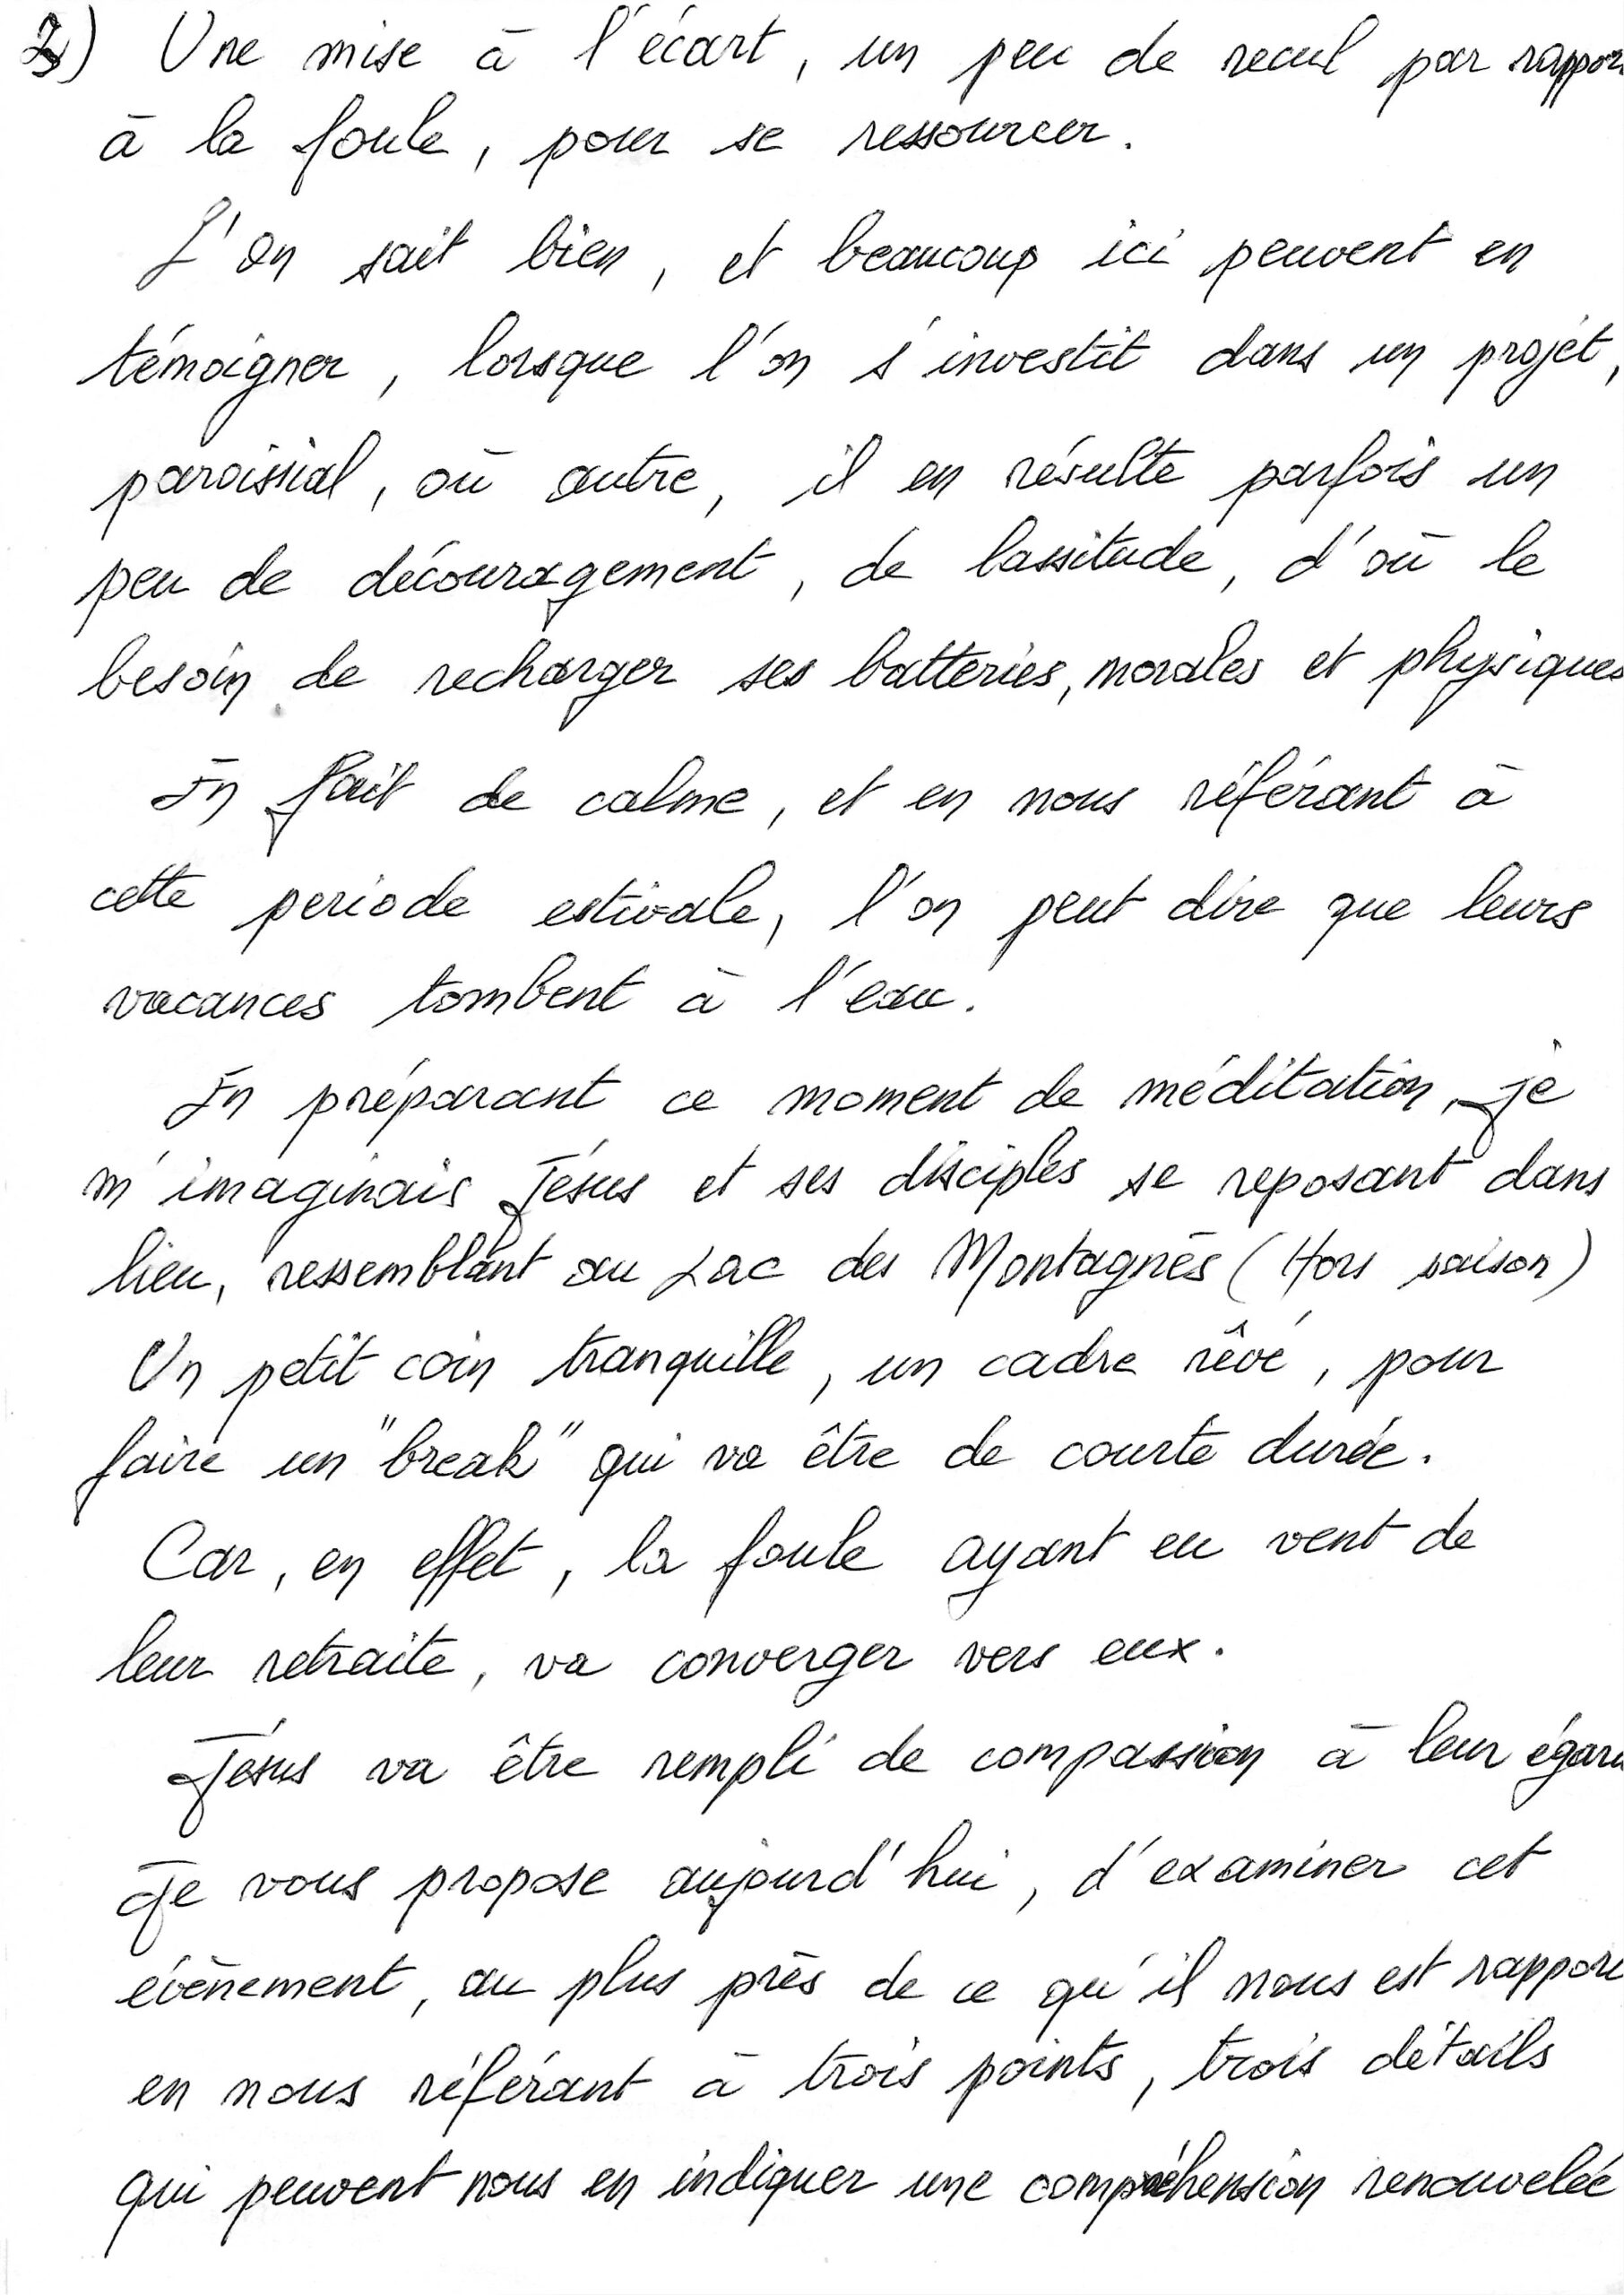 2) Une mise à l'écart, un peu de recul par rappor
à la foule, pour se ressourcer.
L'on sait bien, et beaucoup ici peuvent en
témoigner, lorsque l'on s'investit dans un projet,
paroissial, où autre, il en résulte parfois un
peu de découragement, de lassitude, d'où le
besoin de recharger ses batteries, morales et physiques
En fait de calme, et en nous référant à
cette periode estivale, l'on peut dire que leurs
vacances tombent à l'eau.
En préparant ce moment de méditation, je
m'imaginais Jésus et ses disciples se reposant dans
lieu, ressemblant au Lac des Montagnès (Hors saison)
Un petit coin tranquille, un cadre rêvé, pour
faire un "break" qui va être de courte durée.
Car, en effet, la foule ayant eu vent de
leur retraite, va converger vers eux.
Jésus va être rempli de compassion à leur égard
Je vous propose aujourd'hui, d'examiner cet
évènement, au plus près de ce qu'il nous est rappor
en nous référant à trois points, trois détails
qui peuvent nous en indiquer une compréhension renouvelée